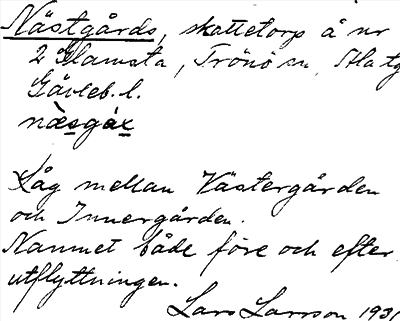 Nästgårds, skattetorp å nr
2 Hamsta, Trönö sn,
Gävleb. l.
næsgáx
Låg mellan Västergården
och Innergården.
Namnet både före och efter
utflyttningen.
Lars Larsson 1931